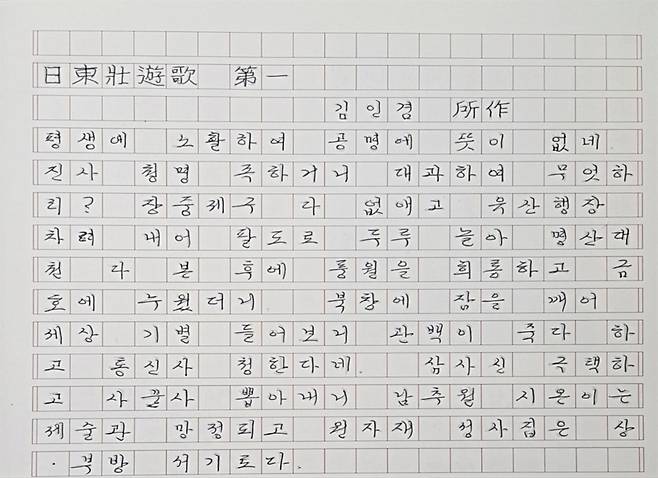 日東壯遊歌 第一
김일겸 所作
평생에 노활하여 공명에 뜻이 없네
진사 청명 족하거니 대과하여 무엇하
리? 장중제구 다 없애고 유산행장
차려 내어 팔도로 두루 놀아 명산대
천 다 본 후에 풍월을 희롱하고 금
호에 누웠더니 북창에 잠을 깨어
세상 기별 들어보니 관백이 죽다 하
고 통신사 청한다네. 삼사신 극택하
고 사문사 뽑아내니 남추월 시온이는
제술관 망정되고 원자재 성사집은 상
· 부방 서기로다.